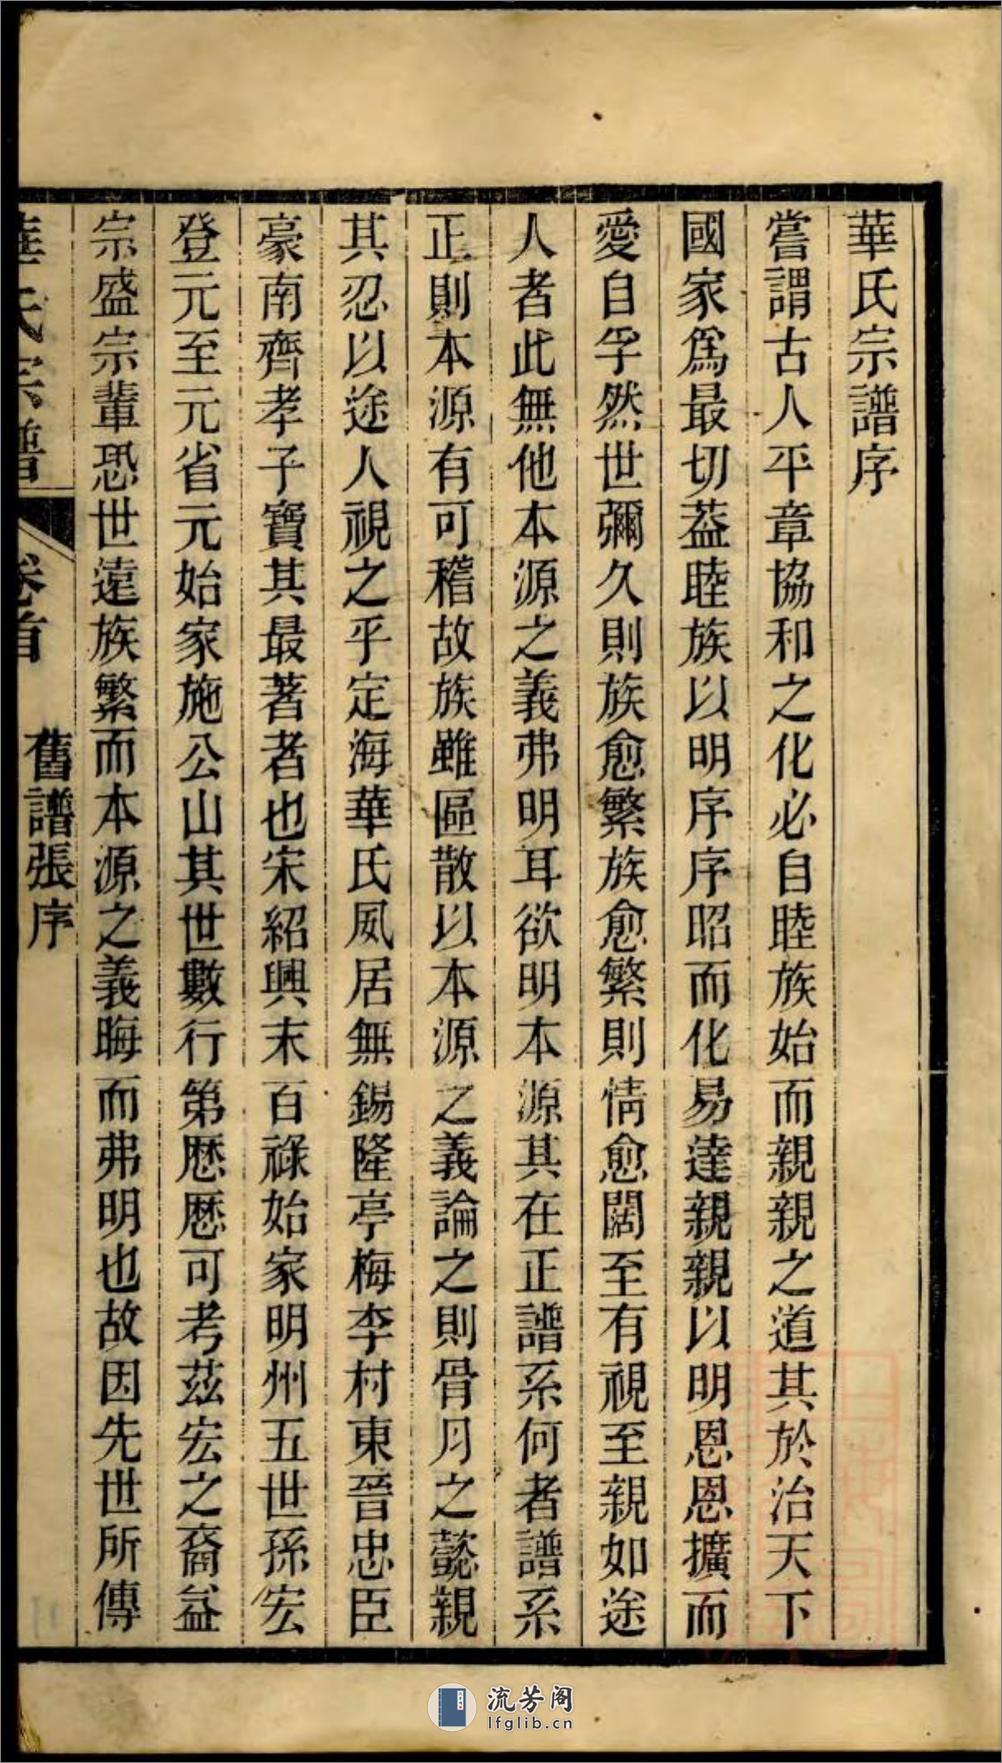 華氏宗譜序
嘗謂古人平章協和之化必自睦族始而親親之道其於治天下
國家爲最切葢睦族以明序序昭而化易達親親以明恩恩擴而
愛自孚然世彌久則族愈繁族愈繁則情愈闊至有視至親如途
人者此無他本源之義弗明耳欲明本源其在正譜系何者譜系
正則本源有可稽故族雖區散以本源之義論之則骨月之懿親
其忍以途人視之乎定海華氏夙居無錫隆亭梅李村東晉忠臣
豪南齊孝子寶其最著者也宋紹興末百祿始家明州五世孫宏
登元至元省元始家施公山其世數行第歷歷可考茲宏之裔益
宗盛宗輩恐世遠族繁而本源之義晦而弗明也故因先世所傳
華氏宗譜 卷首 舊譜張序
流芳阁
lfglib.cn